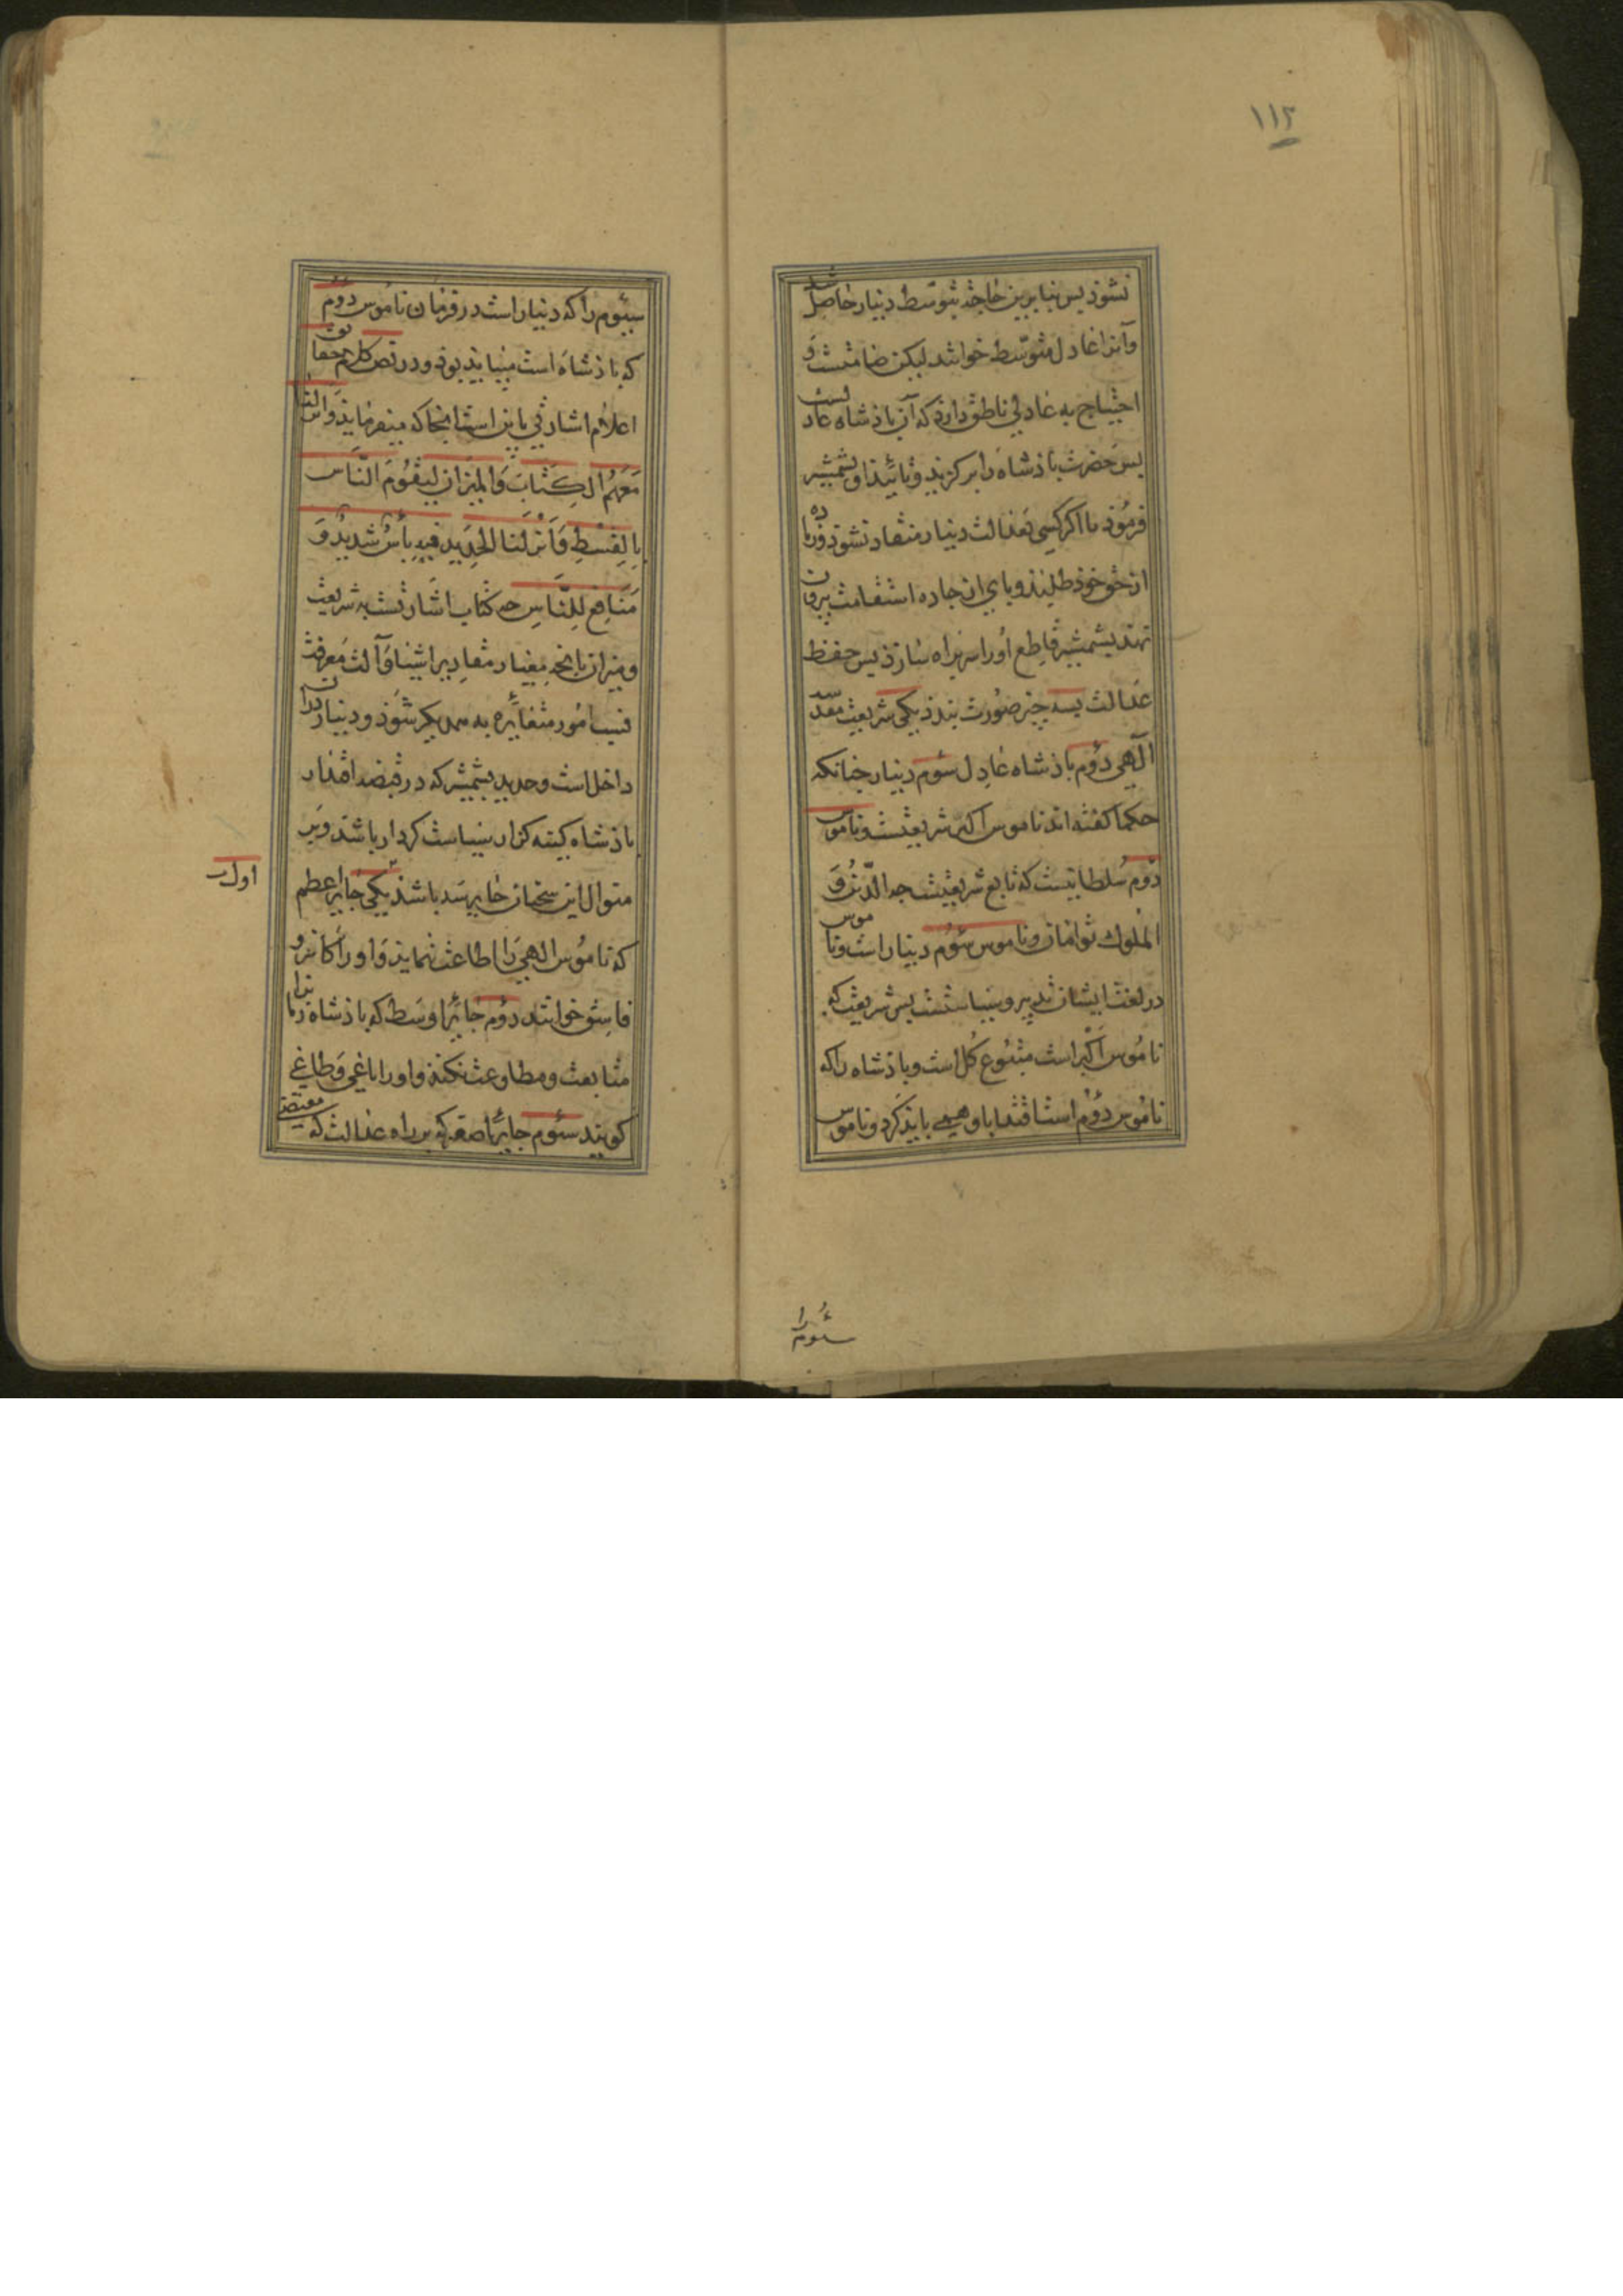 ١١٢
نشوذ پس بنابرین حاجة بتوسّط دینار حاصل شد
وآنرا عادل متوسّط خوانند لیکن صامتست وَ
احتیاج به عادلی ناطق دارذ که آن باذشاه عادلست
پس حضرت باذشاه را برکزید وتائیذ او بشمشیر
فرموذ تا اکر کسی بعدالت دینار منقاد نشوذ وزیاده
از حق خوذ طلبذ وپای از جاده استقامت بیرون
نهد بشمشیر قاطع اورا سربراه سازذ پس حفظ
عدالت بسه چیز صورت بندذ یکی شریعت مقدّسه
الٓهی دوُم باذشاه عادِل سئوم دینار چنانکه
حکما کفته اند ناموس اکبر شریعتست وناموس
دوّم سُلطانیست که تابع شریعتیست جه الدّین وَ
المُلوك توامان وناموس سئوُم دینار است وناموس
در لغت ایشان تدبیر وسیاستست پس شریعت که
نامُوس اَکبر است متبُوع کُل است وباذشاه را که
نامُوس دوُم است اقتدا باو همی بایذ کرد وناموس
سئوم را
سیئوم را که دینار است در فرمان نامُوس دوُم
که باذشاه است میباید بوذ ودر نص کلام حقایق
اعلام اشارتی باین است انجا که میفرمایذ وَانزلنا
مَعَهُمُ الکِتابَ وَالمیزان لِیَقُومَ النّاس
بِالقِسْطِ وَاَنْزَلنَا الحَدِید فیهِ بأسٌ شَدیدٌ وَ
مَنَافِع لِلنّاسِ جه کتاب اشارتست به شریعت
ومیزان بانجه معیار مقادیر اشیا وآلت معرفت
نسب امُور متغائره به همدیکر شَوَذ ودینار دران
داخل است وحدید بشمشیر که در قبضه اقتدار
باذشاه کینه کزار سیاست کردار باشد وبر
منوال این سخنان جایر سه باشذ یکی جایر اعظم
اول
که نامُوس الهی رَا اطاعت ننماید وَاورا کافر و
فاسِق خوانند دوُم جائر اوسَط که باذشاه زمانرا
متابعت ومطاوعت نکند واورا باغی وَطاغی
کویند سئوم جایر اصغر که بر راه عدالت که مقتضی